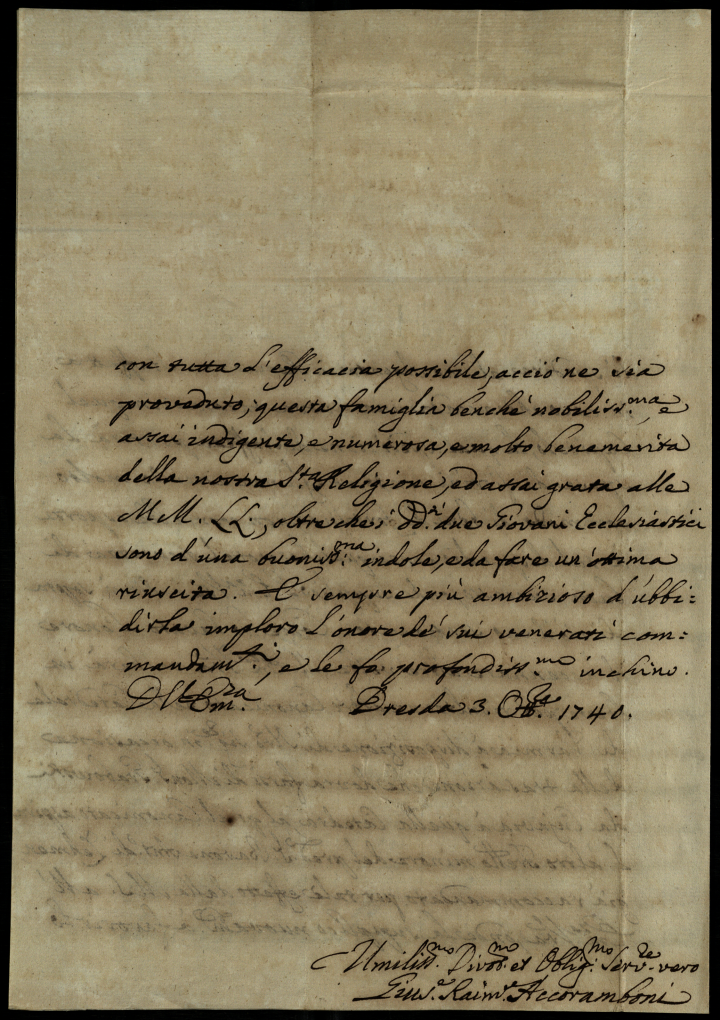 con tutta l'efficacia possibile, acciò ne sia
proveduto; questa famiglia benché nobiliss:ma, e
assai indigente, e numerosa, e molto benemerita
della nostra S.ta Religione, ed assai grata alle
MM. LL., oltre che i DD.ri due Giovani Ecclesiastici
sono d'una buoniss:ma indole, e da fare un'ottima
riuscita. E sempre più ambizioso d'ubbi=
dirla imploro l'onore de' sui venerati com=
mandam:ti, e le fo profondiss:mo inchino.
Dresda 3. Ott:re 1740.
Umiliss:mo Divot:mo et Oblig:mo Serv:re vero
Gius:e Raim:o Accoramboni